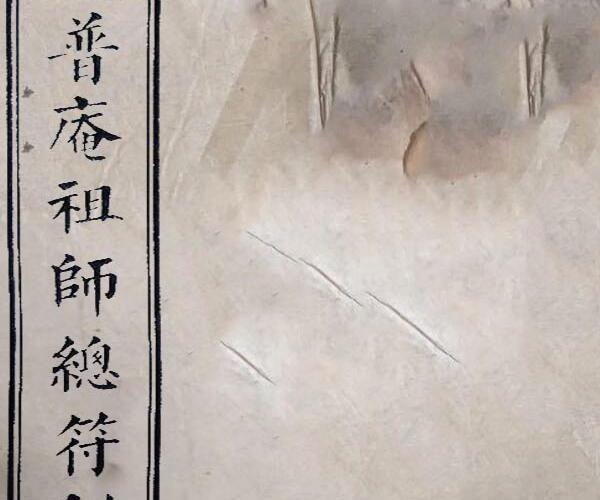 普庵祖師總符